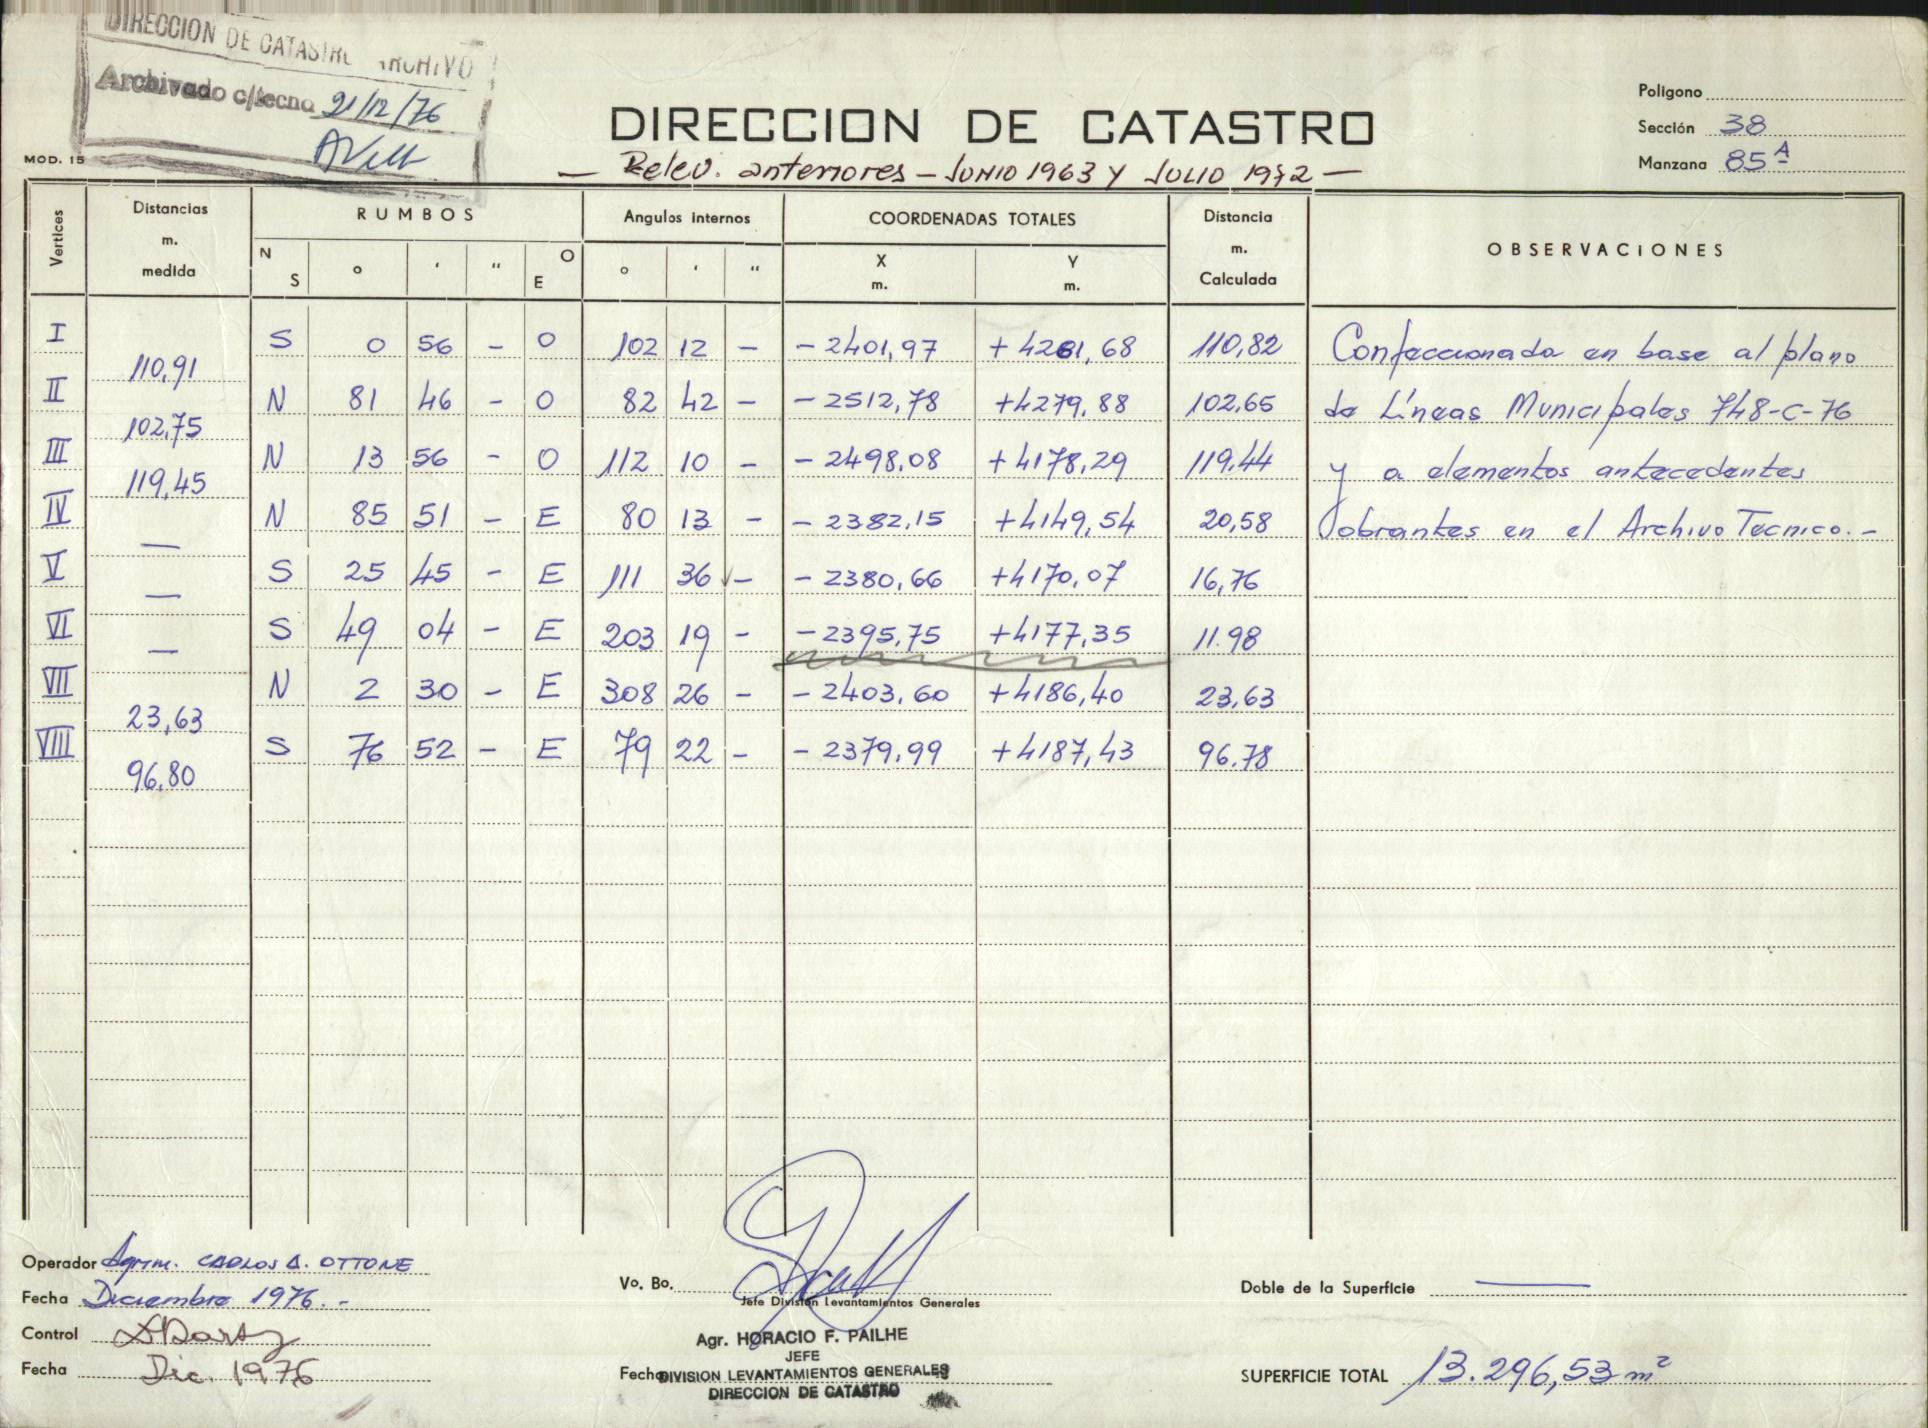 DIRECCION DE CATASTRO ARCHIVO
Archivado c/fecha 21/12/76
MOD. 15
DIRECCION DE CATASTRO
— Relev. anteriores — JUNIO 1963 Y JULIO 1972 —
Poligono
Sección 38
Manzana 85 A
Vertices Distancias m. medida RUMBOS Angulos internos COORDENADAS TOTALES Distancia m. Calculada OBSERVACIONES
N S ° ' " O E ° ' " X m. Y m.
I S 0 56 - O 102 12 - - 2401,97 + 4281,68 110,82 Confeccionada en base al plano
110,91
II N 81 46 - O 82 42 - - 2512,78 +4279,88 102,65 de Líneas Municipales 748-C-76
102,75
III N 13 56 - O 112 10 - - 2498,08 +4178,29 119,44 y a elementos antecedentes
119,45
IV N 85 51 - E 80 13 - - 2382,15 +4149,54 20,58 obrantes en el Archivo Tecnico.-
—
V S 25 45 - E 111 36 - - 2380,66 +4170,07 16,76
—
VI S 49 04 - E 203 19 - - 2395,75 +4177,35 11.98
—
VII N 2 30 - E 308 26 - - 2403,60 +4186,40 23,63
23,63
VIII S 76 52 - E 79 22 - - 2379,99 +4187,43 96.78
96,80
Operador Agrim. CARLOS A. OTTONE
Fecha Diciembre 1976.-
Control
Fecha Dic. 1976
Vo. Bo.
Jefe División Levantamientos Generales
Agr. HORACIO F. PAILHE
JEFE
Fecha DIVISION LEVANTAMIENTOS GENERALES
DIRECCION DE CATASTRO
Doble de la Superficie —
SUPERFICIE TOTAL 13.296,53 m²